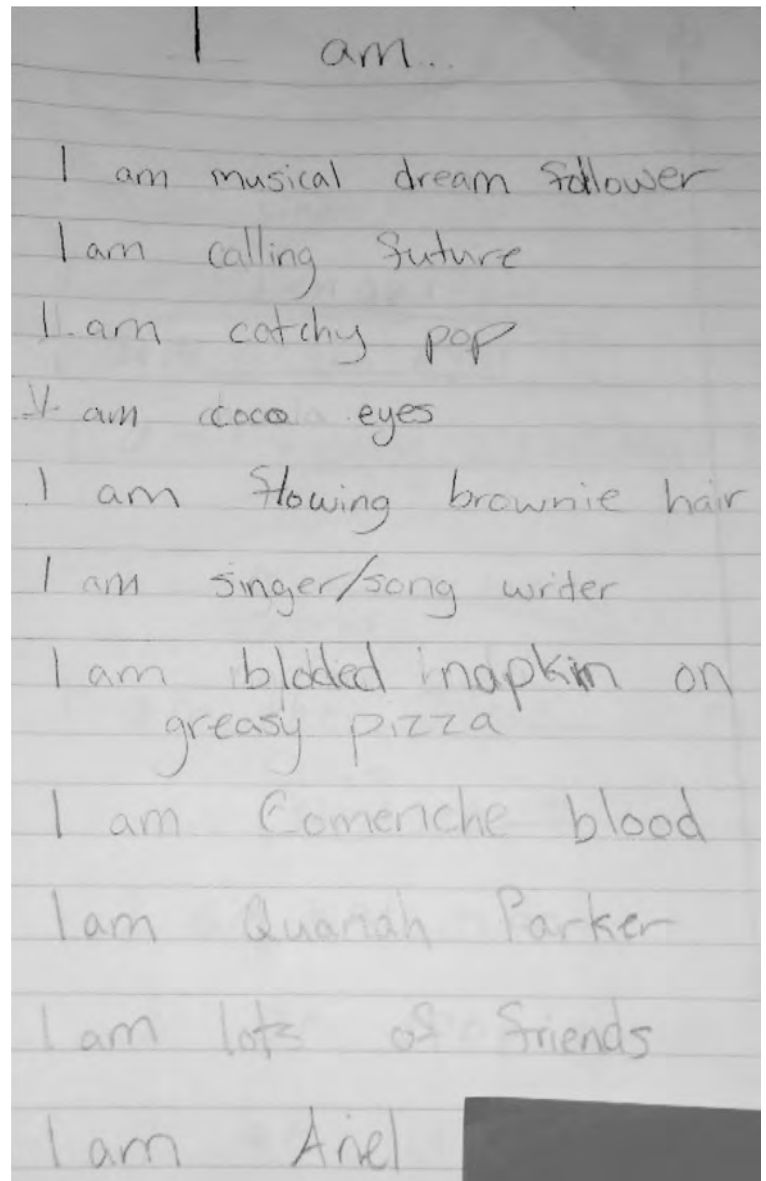 I am...
I am musical dream follower
I am calling future
I am catchy pop
I am coco eyes
I am flowing brownie hair
I am singer/song writer
I am bloded napkin on
greasy pizza
I am Comenche blood
I am Quanah Parker
I am lots of friends
I am Ariel